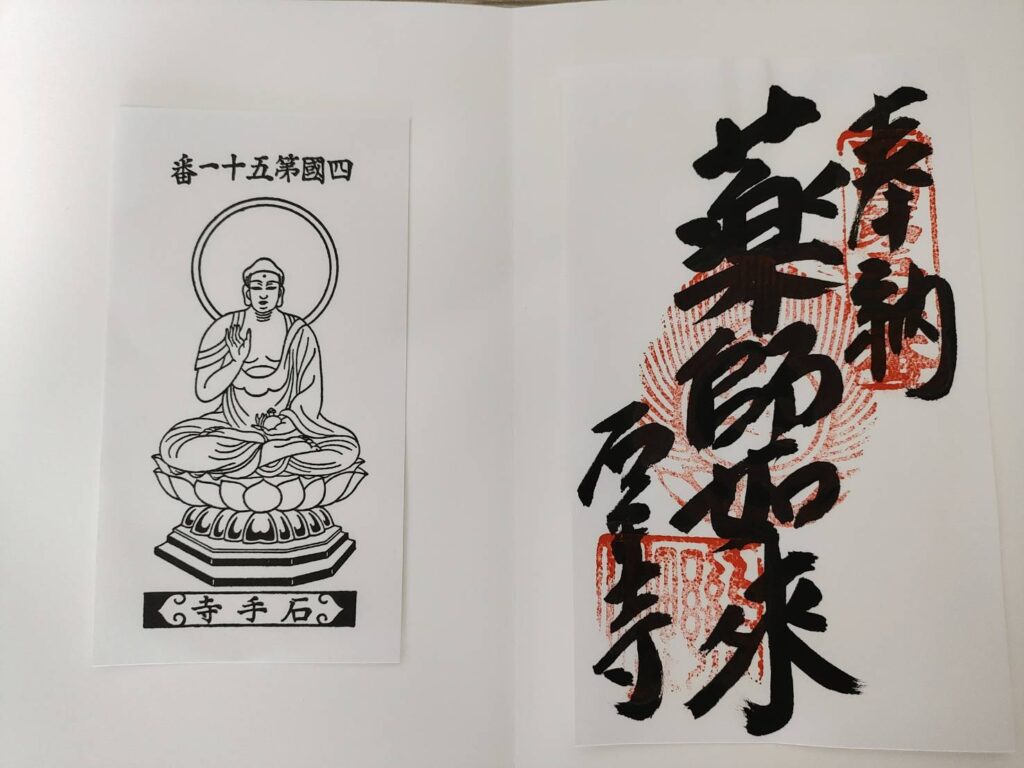 四國第五十一番
石手寺
奉納
薬師如来
石手寺